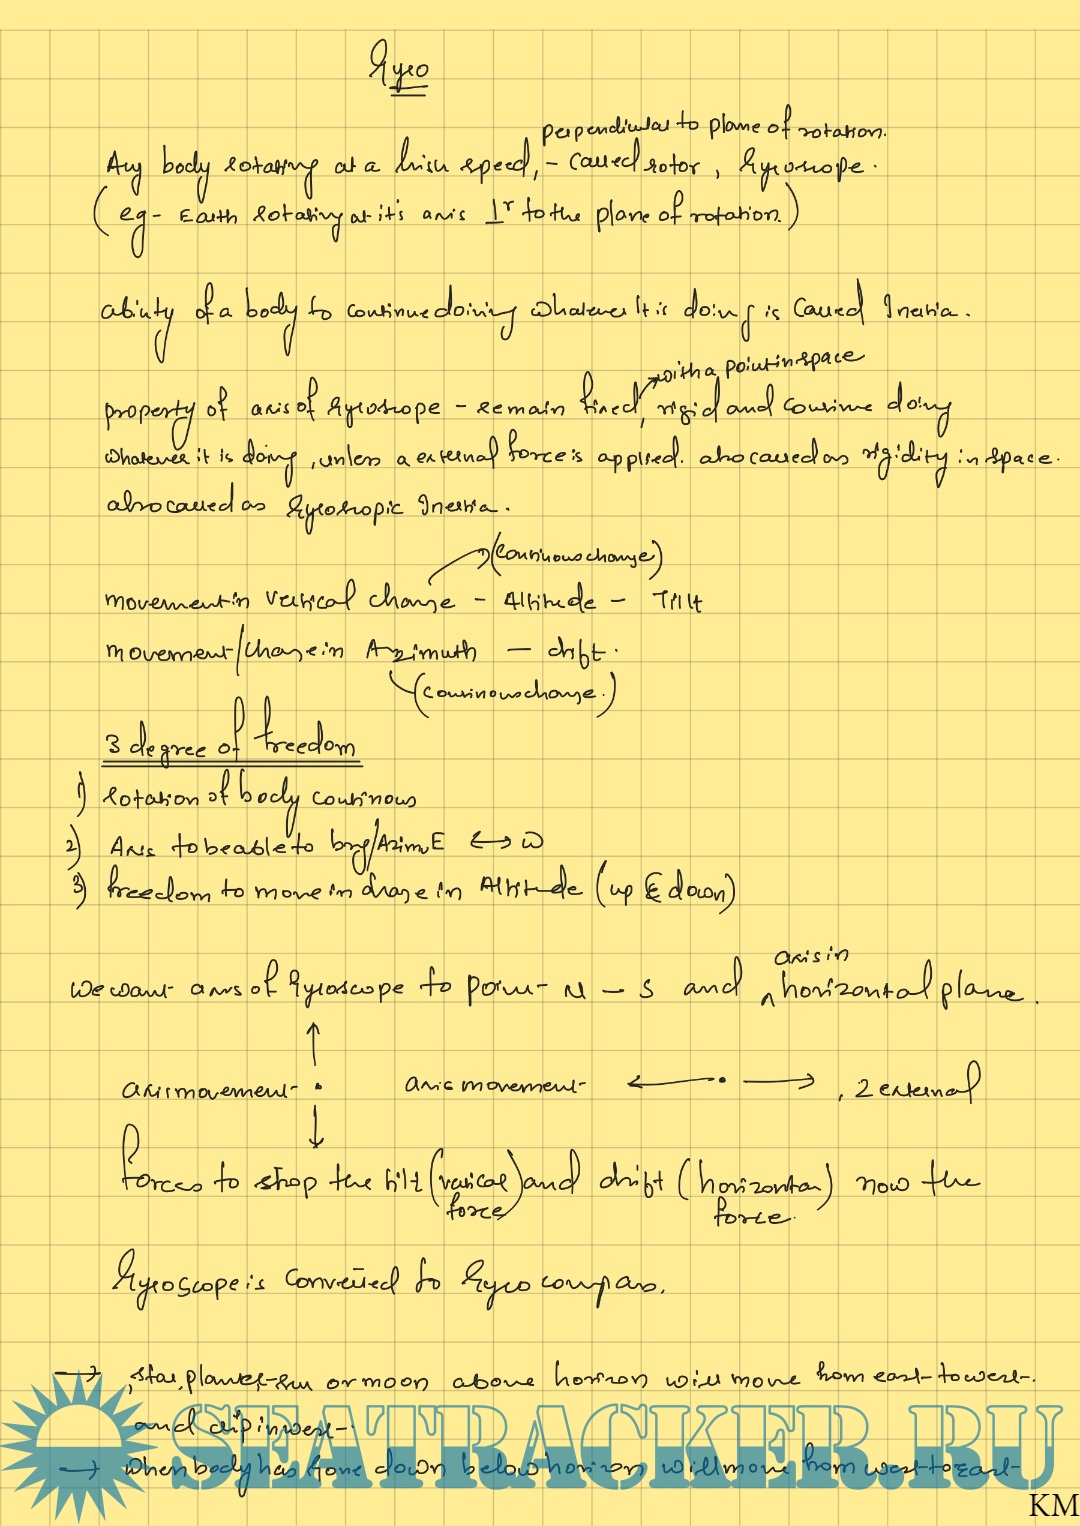 Gyro
perpendicular to plane of rotation.
Any body rotating at a high speed, - called rotor, Gyroscope.
(eg- Earth rotating at it's axis ⊥r to the plane of rotation.)
ability of a body to continue doining whatever it is doing is called Inertia.
with a point in space
property of axis of Gyroscope - remain fixed, rigid and continue doing
whatever it is doing, unless a external force is applied. also called as rigidity in space.
also called as Gyroscopic Inertia.
(continous change)
movement in vertical change - Altitude - Tilt
movement/change in Azimuth - drift.
(continous change.)
3 degree of freedom
1) rotation of body continous
2) Axis to be able to brg/Azim E ↔ W
3) freedom to move in change in Altitude (up & down)
axis in
we want axis of Gyroscope to point N - S and ^ horizontal plane.
axis movement axis movement ← • →, 2 external
forces to stop the tilt (vertical) and drift (horizontal) now the
force force.
Gyroscope is converted to Gyro compass.
→ star, planet, sun or moon above horizon will move from east to west.
and dip in west.
→ when body has gone down below horizon will move from west to east
SEATRACKER.RU
KM